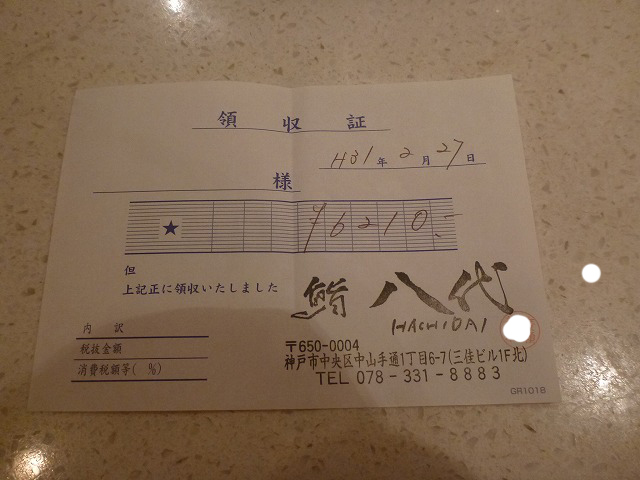 領収証
H31年2月27日
様
★ ¥6210.-
但
上記正に領収いたしました
鮨 八代
HACHIDAI
内訳
税抜金額
消費税額等( %)
〒650-0004
神戸市中央区中山手通1丁目6-7(三佳ビル1F北)
TEL 078-331-8883
GR1018